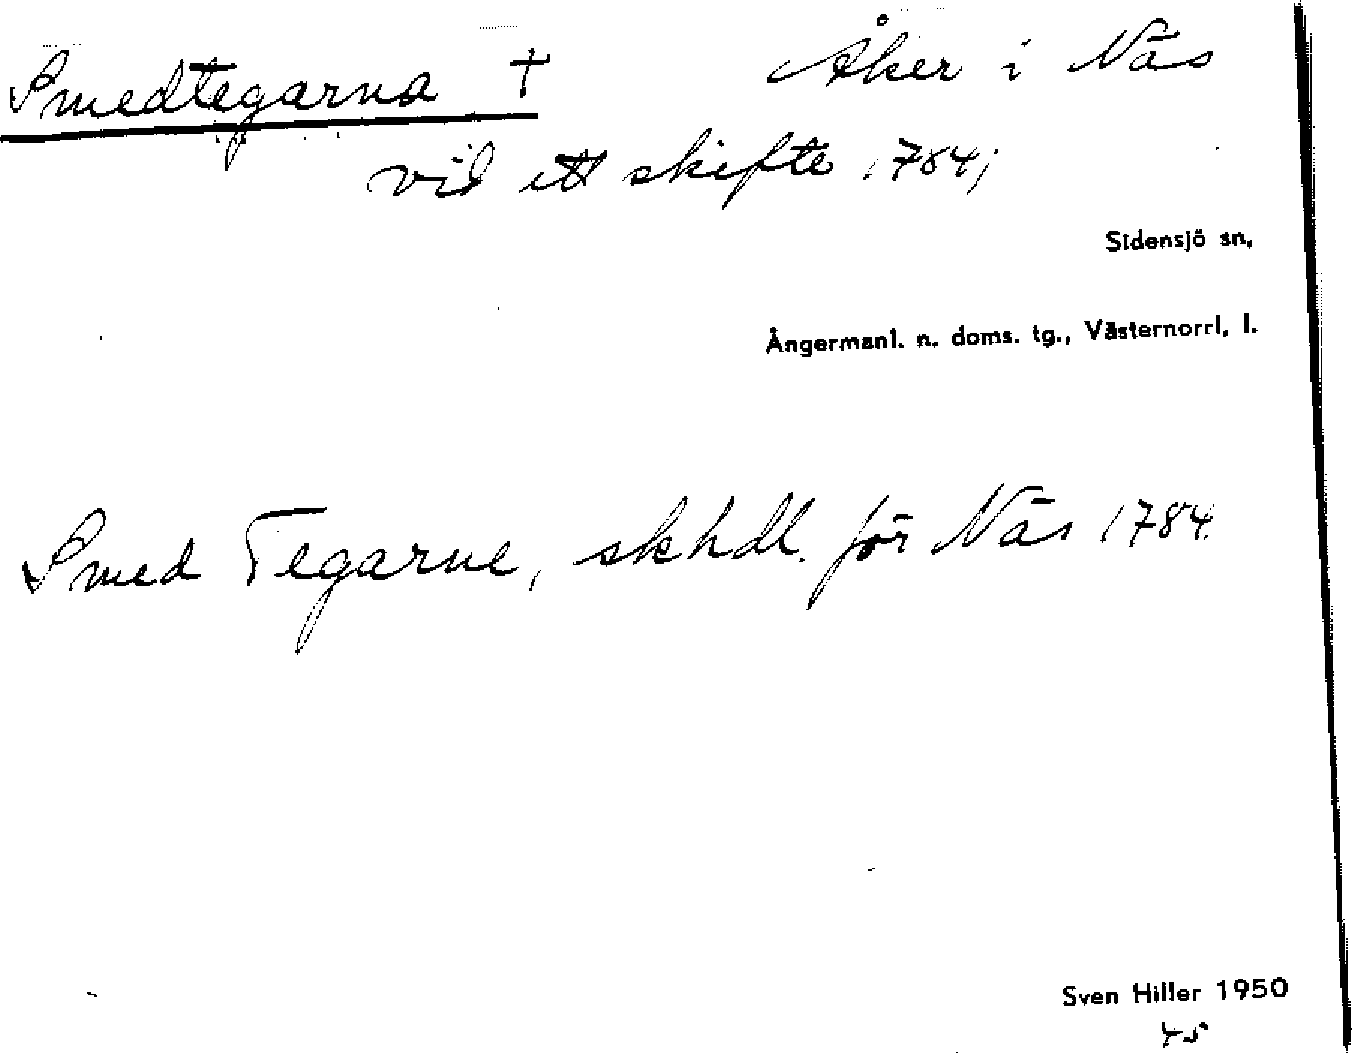 Smedtegarna † Åker i Näs
vid ett skifte 1784;
Sidensjö sn,
Ångermanl. n. doms. tg., Västernorrl. l.
Smed Tegarne, skhdl. för Näs 1784.
Sven Hiller 1950